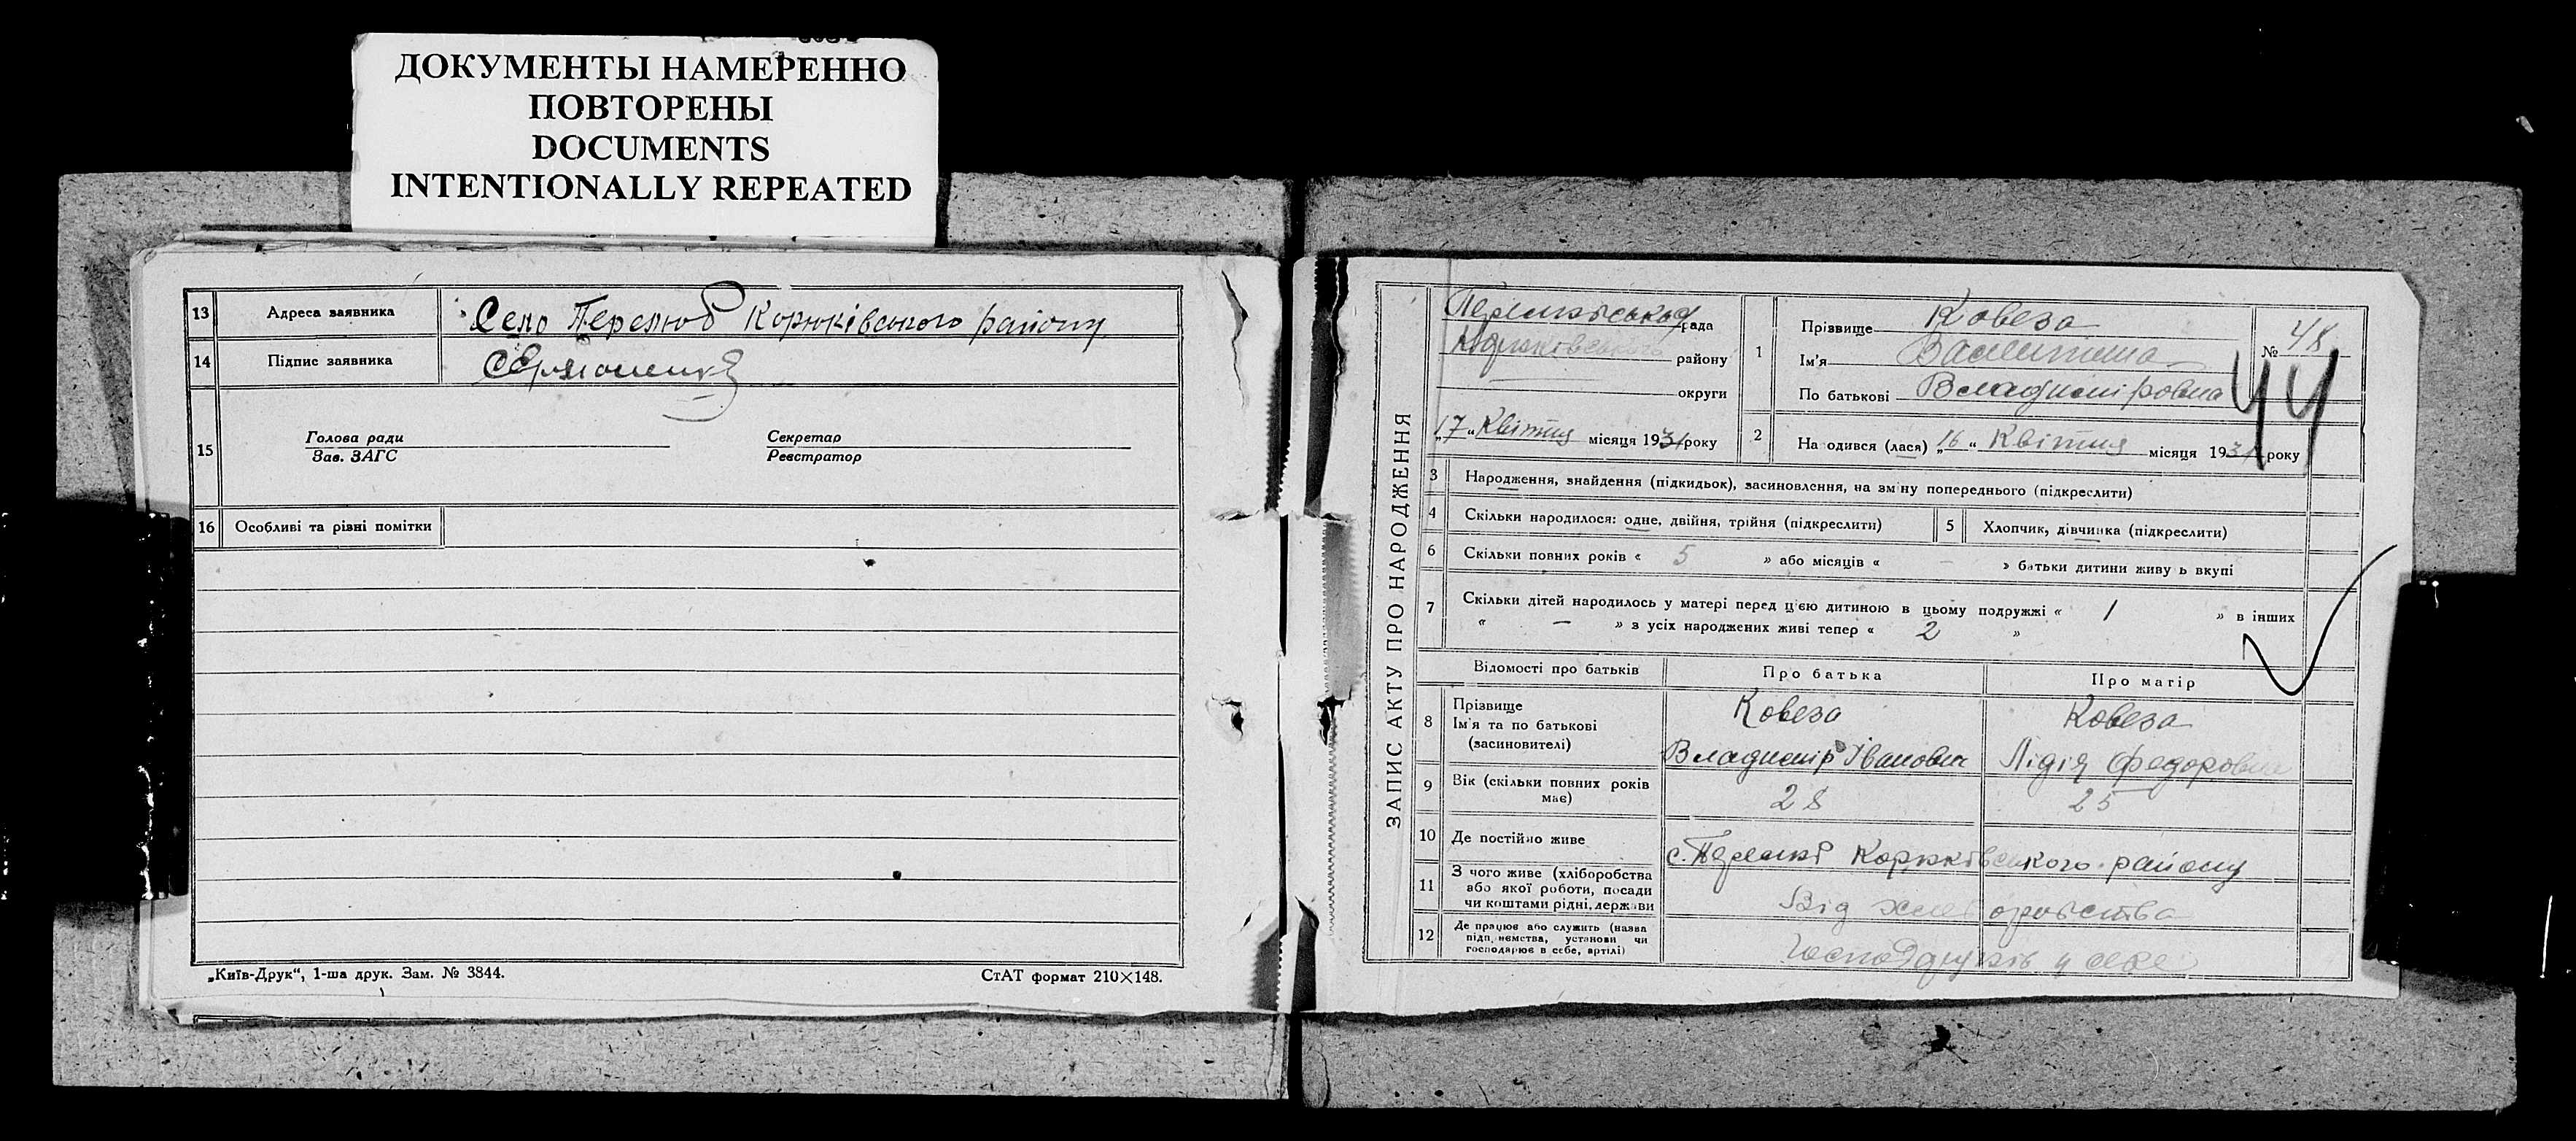 ДОКУМЕНТЫ НАМЕРЕННО
ПОВТОРЕНЫ
DOCUMENTS
INTENTIONALLY REPEATED
13 Адреса заявника Село Перелюб Корюківського району
14 Підпис заявника
15 Голова ради Секретар
Зав. ЗАГС Реєстратор
16 Особливі та різні помітки
„Київ-Друк“, 1-ша друк. Зам. № 3844. СтАТ формат 210×148.
ЗАПИС АКТУ ПРО НАРОДЖЕННЯ
Перелюбська рада
Корюківського району
округи
„17“ Квітня місяця 1931 року
1 Прізвище Ковеза
Ім'я Валентина
По батькові Владиміровна
№ 48
44
2 На одився (лася) „16“ Квітня місяця 1931 року
3 Народження, знайдення (підкидьок), засиновлення, на зміну попереднього (підкреслити)
4 Скільки народилося: одне, двійня, трійня (підкреслити) 5 Хлопчик, дівчинка (підкреслити)
6 Скільки повних років « 5 » або місяців « – » батьки дитини живу ь вкупі
7 Скільки дітей народилось у матері перед цією дитиною в цьому подружжі « 1 » в інших
« – » з усіх народжених живі тепер « 2 »
Відомості про батьків Про батька Про матір
8 Прізвище Ковеза Ковеза
Ім'я та по батькові
(засиновителі) Владимір Іванович Лідія Федоровна
9 Вік (скільки повних років має) 28 25
10 Де постійно живе с. Перелюб Корюківського району
11 З чого живе (хліборобства
або якої роботи, посади
чи коштами рідні, держави Від хліборобства
12 Де працює або служить (назва
підприємства, установи чи
господарює в себе, артілі) у себе